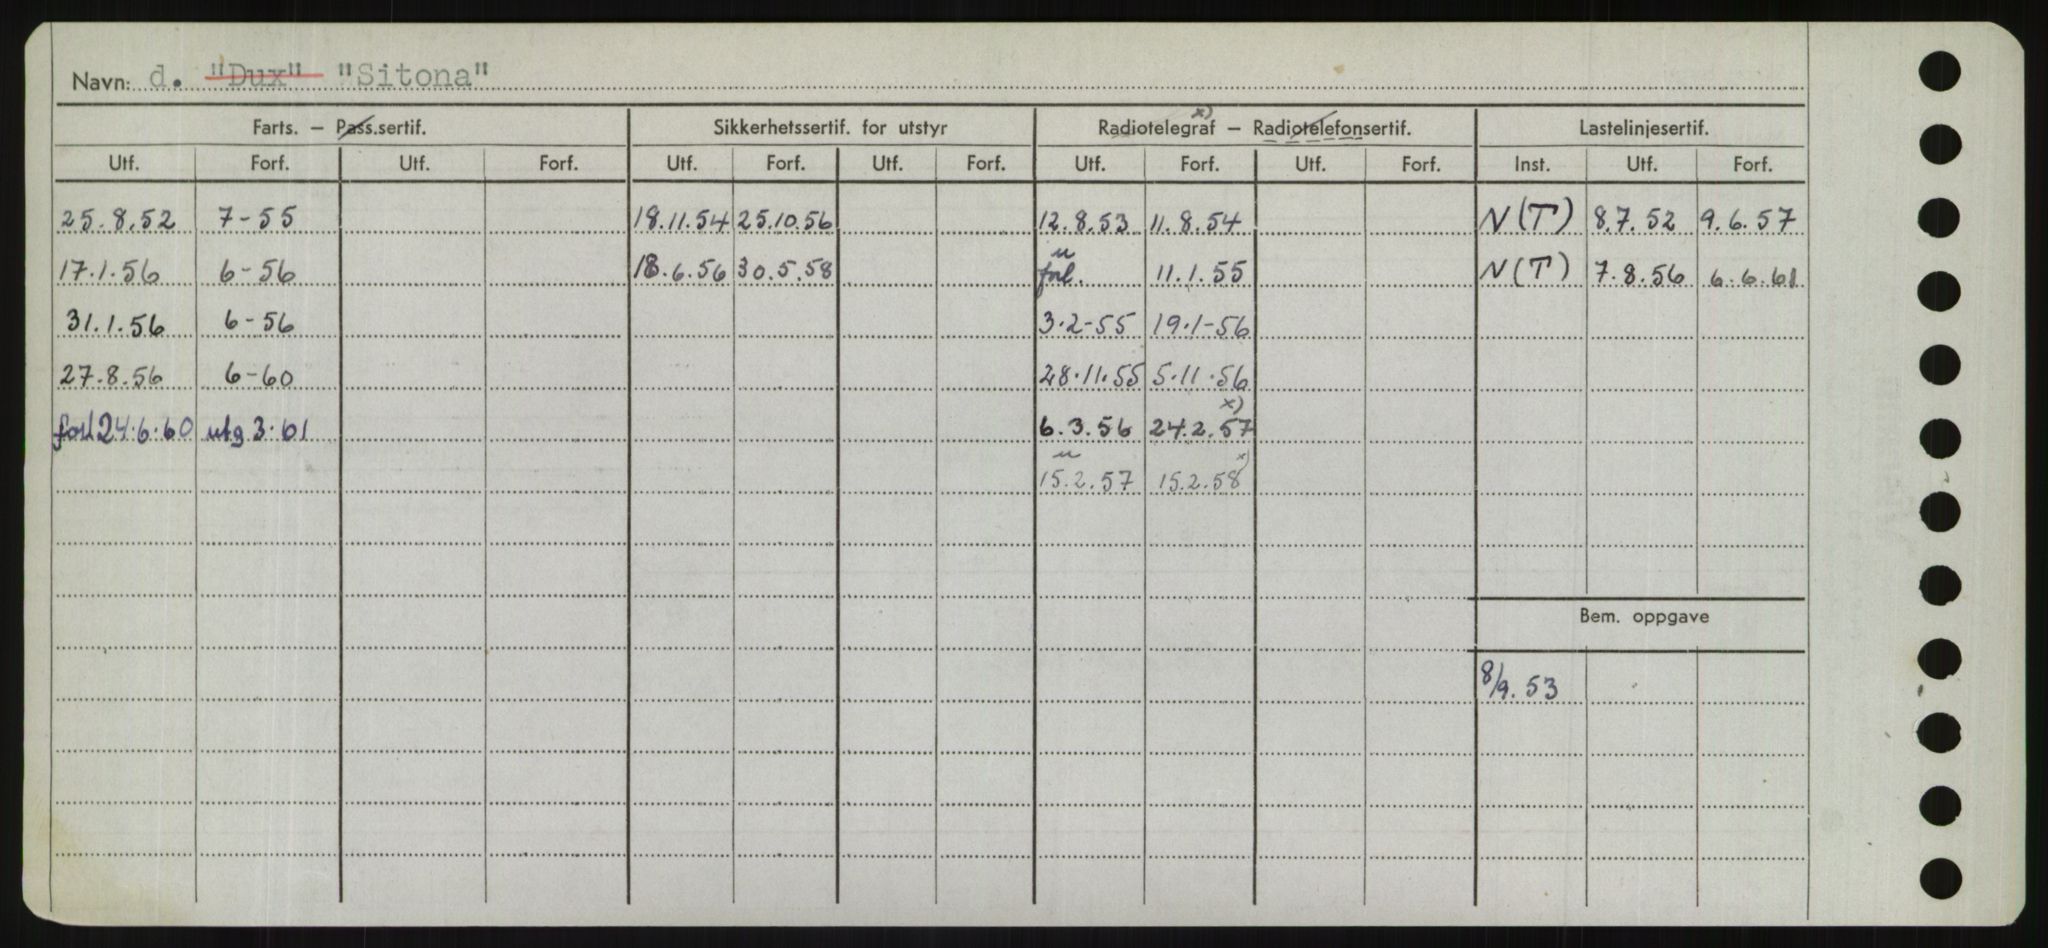 Navn: d. "Dux" "Sitona"
Farts. – Pass.sertif. Sikkerhetssertif. for utstyr Radiotelegraf x) – Radiotelefonsertif. Lastelinjesertif.
Utf. Forf. Utf. Forf. Utf. Forf. Utf. Forf. Utf. Forf. Utf. Forf. Inst. Utf. Forf.
25.8.52 7-55 18.11.54 25.10.56 12.8.53 11.8.54 N(T) 8.7.52 9.6.57
17.1.56 6-56 18.6.56 30.5.58 " forl. 11.1.55 N(T) 7.8.56 6.6.61
31.1.56 6-56 3.2-55 19.1-56
27.8.56 6-60 28.11.55 5.11.56
forl 24.6.60 utg 3.61 6.3.56 24.2.57 x)
" 15.2.57 15.2.58 x)
Bem. oppgave
8/9. 53